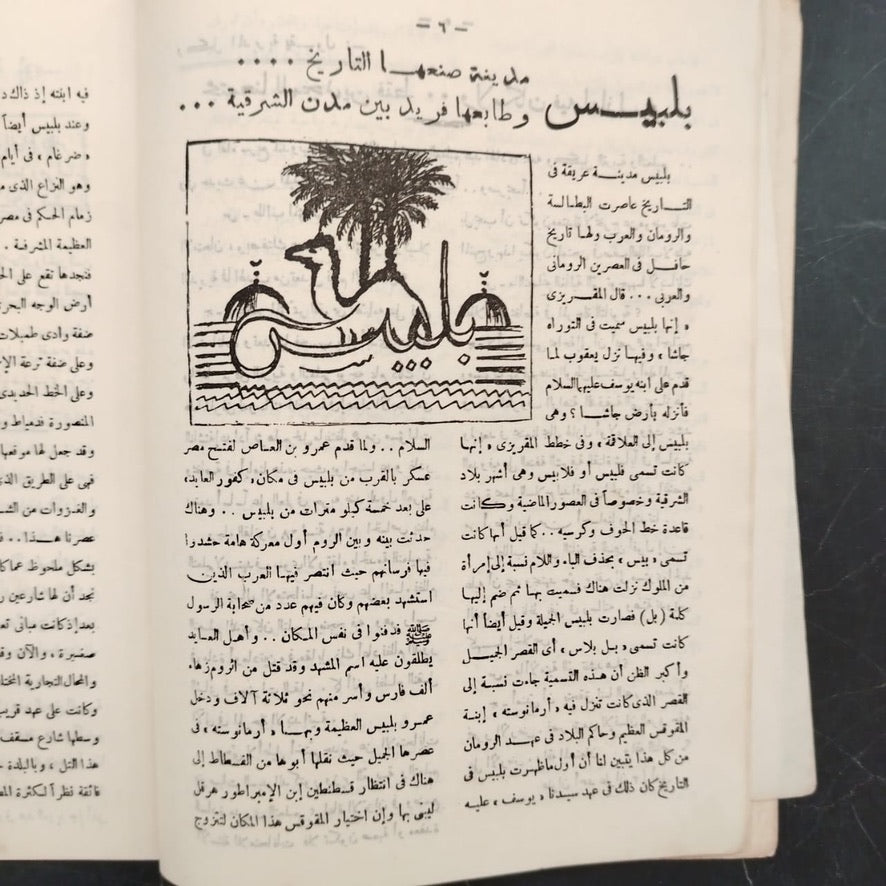 - ٦ -
بلبيس
مدينة صنعها التاريخ ....
وطابعها فريد بين مدن الشرقية ...
بلبيس
بلبيس مدينة عريقة فى
التاريخ عاصرت البطالسة
والرومان والعرب ولها تاريخ
حافل فى العصرين الرومانى
والعربى ... قال المقريزى
« إنها بلبيس سميت فى التوراه
جاشا ، وفيها نزل يعقوب لما
قدم على ابنه يوسف عليهما السلام
فأنزله بأرض جاشا ؟ وهى
بلبيس إلى العلاقة ، وفى خطط المقريزى « إنها
كانت تسمى فلبيس أو فلابيس وهى أشهر بلاد
الشرقية وخصوصاً فى العصور الماضية وكانت
قاعدة خط الحوف وكرسيه .. كما قيل أنها كانت
تسمى « بيس » بحذف الباء واللام نسبة إلى إمرأة
من الملوك نزلت هناك فسميت بها ثم ضم إليها
كلمة (بل) فصارت بلبيس الجميلة وقيل أيضاً أنها
كانت تسمى « بل بلاس » أى القصر الجميل
وأكبر الظن أن هذه التسمية جاءت نسبة إلى
القصر الذى كانت تنزل فيه « أرمانوسته » إبنة
المقوقس العظيم وحاكم البلاد فى عهد الرومان
من كل هذا يتبين لنا أن أول ما ظهرت بلبيس فى
التاريخ كان ذلك فى عهد سيدنا « يوسف » عليه
السلام .. ولما قدم عمرو بن العاص لفتح مصر
عسكر بالقرب من بلبيس فى مكان « كفور العايد »
على بعد خمسة كيلو مترات من بلبيس .. وهناك
حدثت بينه وبين الروم أول معركة هامة حشدوا
فيها فرسانهم حيث انتصر فيها العرب الذين
استشهد بعضهم وكان فيهم عدد من صحابة الرسول
ﷺ فدفنوا فى نفس المكان .. وأهل العايد
يطلقون عليه اسم المشهد وقد قتل من الروم زهاء
ألف فارس وأسر منهم نحو ثلاثة آلاف ودخل
عمرو بلبيس العظيمة وبها « أرمانوسته » فى
عصرها الجميل حيث نقلها أبوها من الفسطاط إلى
هناك فى انتظار قسطنطين إبن الإمبراطور هرقل
ليبنى بها وإن اختيار المقوقس هذا المكان لتتزوج
فيه ابنته إذ ذاك
وعند بلبيس أيضاً
« ضرغام » فى أيام
وهو النزاع الذى
زمام الحكم فى مصر
العظيمة المشرفة .
فنجدها تقع على
أرض الوجه
ضفة وادى طميلات
وعلى ضفة ترعة
وعلى الخط الحديدى
المنصورة فدمياط
وقد جعل لها موقعها
فهى على الطريق
والغزوات من
عصرنا هذا ..
بشكل ملحوظ عما
نجد أن لها شارعين
بعد إذ كانت مبانى
صغيرة . والآن
والمحال التجارية
وكانت على عهد قريب
وسطها شارع مسقف
هذا التل ، وبالبلدة
فائقة نظراً لكثرة